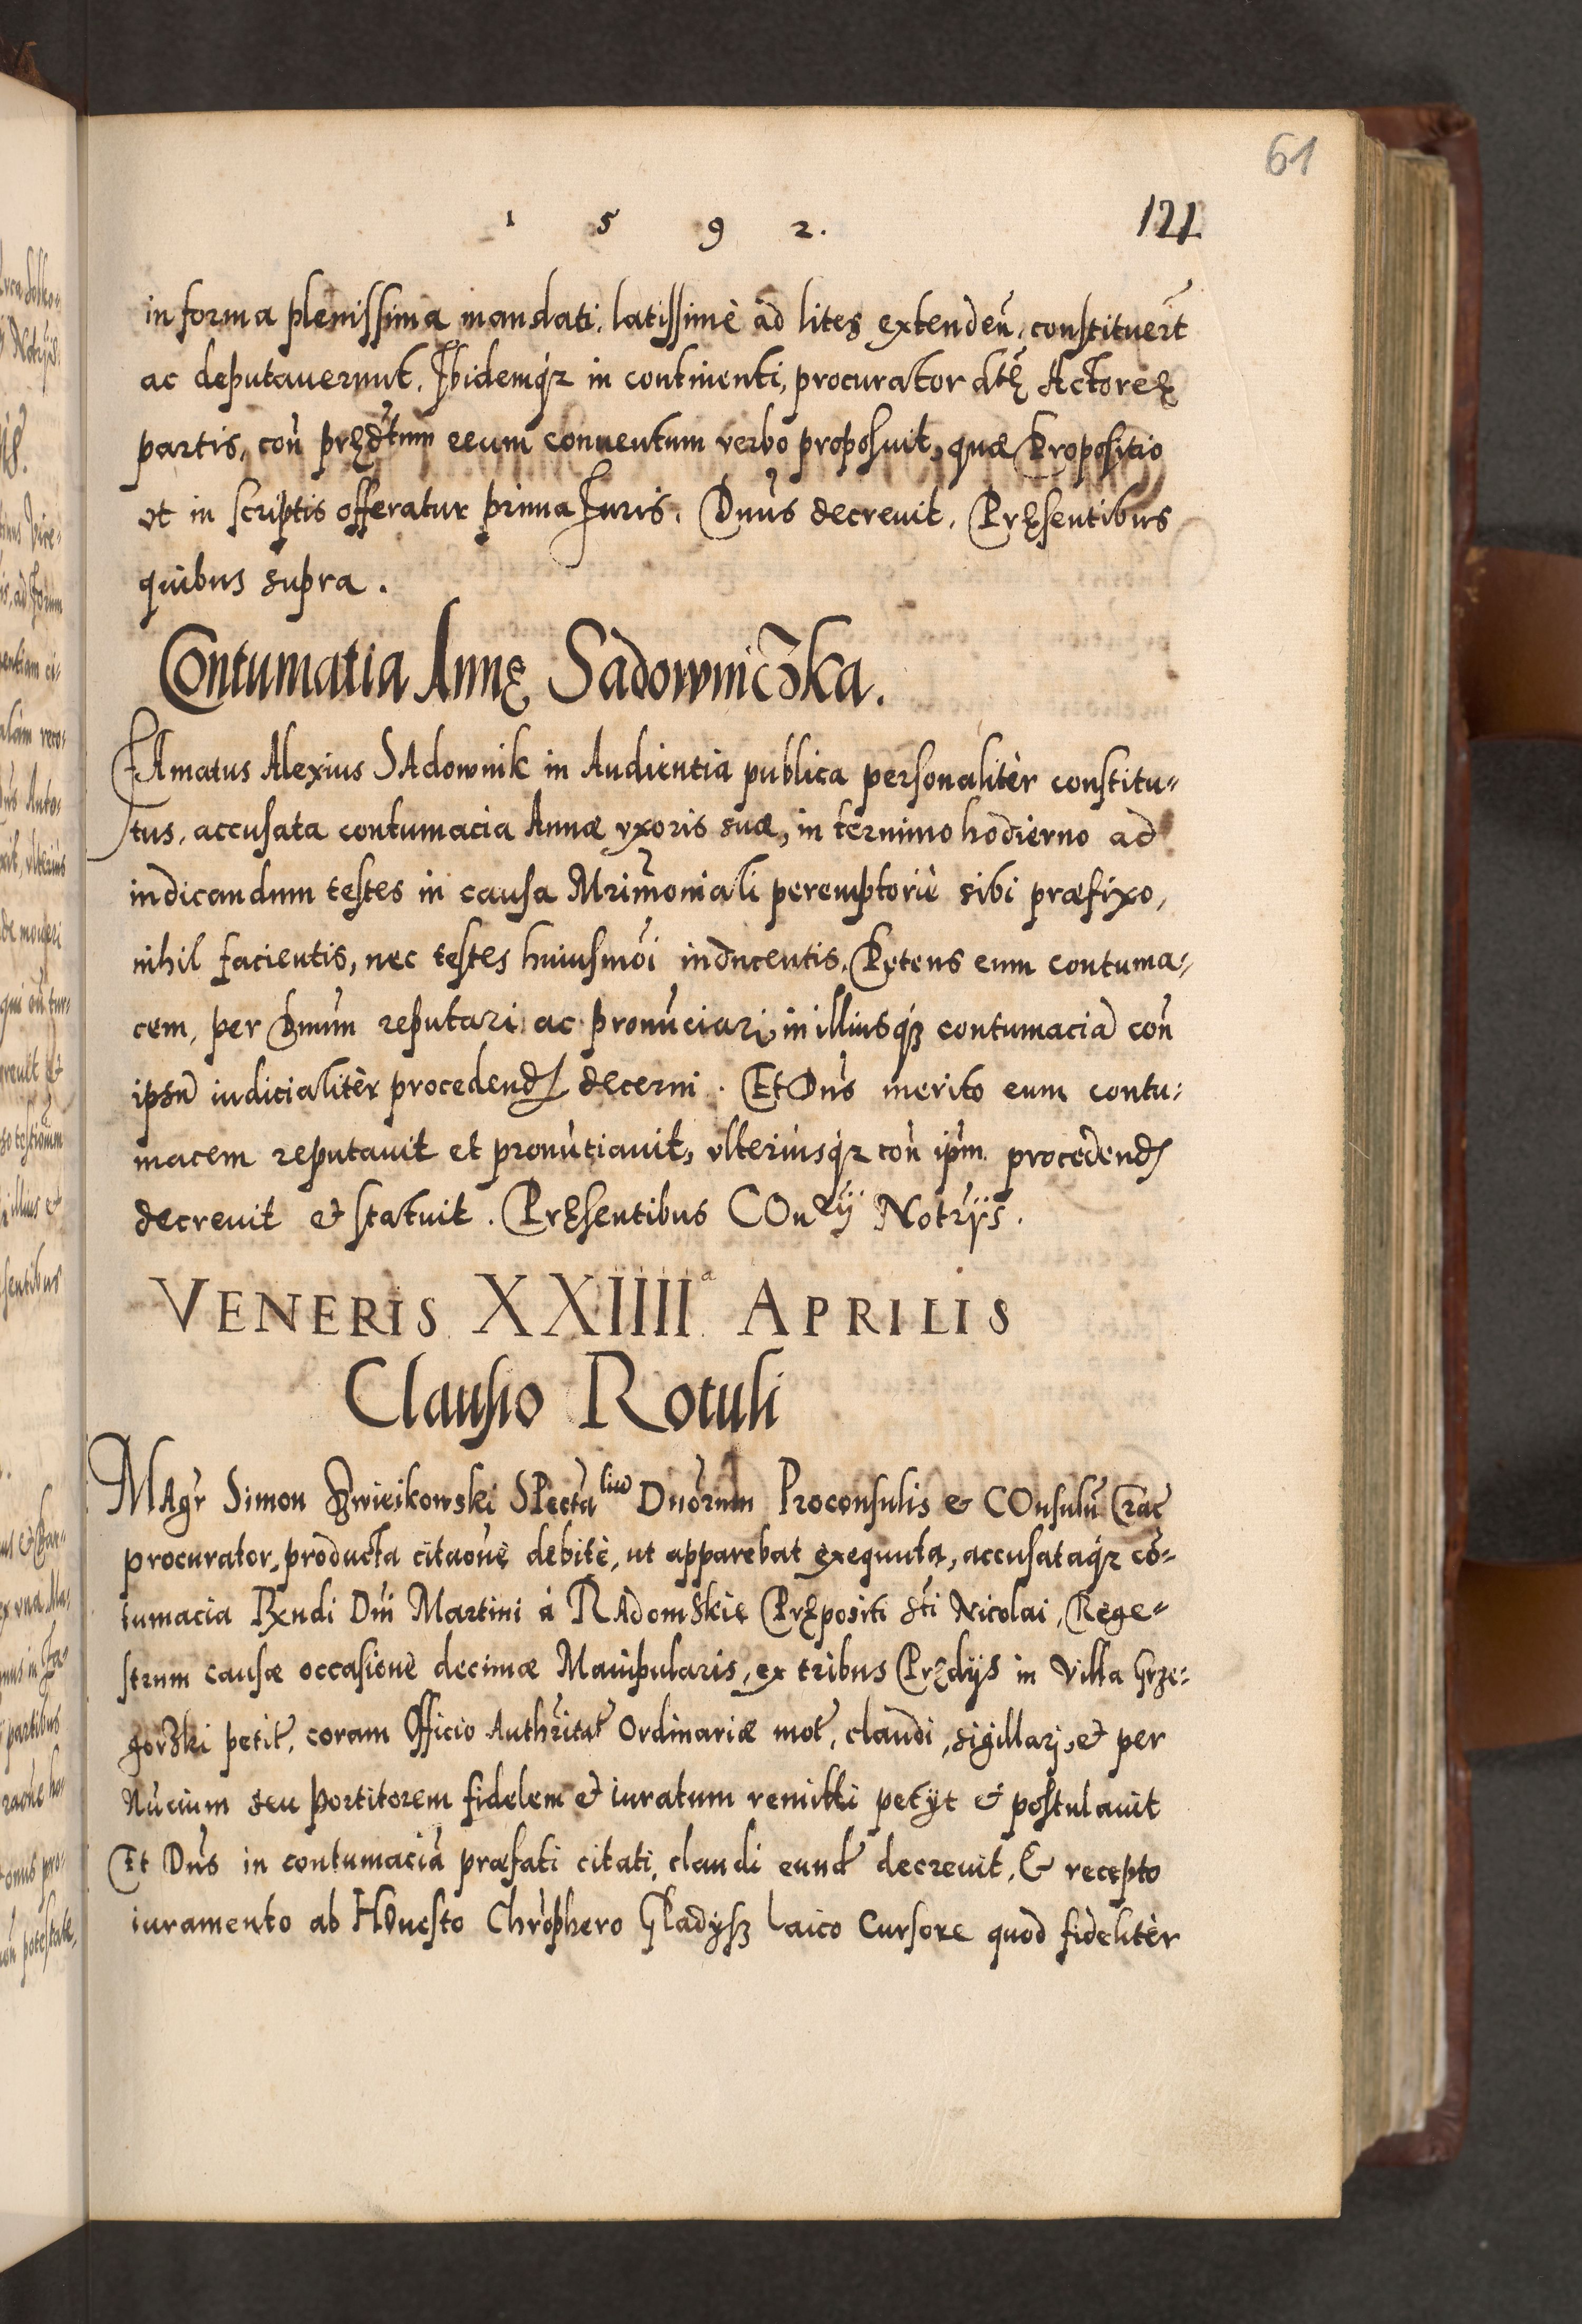 61
1 5 9 2. 121
in forma plenissima mandati, latissimè ad lites extendeñ, constituert̃
ac deputauerunt. Ibidemq́ꝫ in continenti, procurator dtę Actoreę
partis, coñ pręd̃tum reum conuentum verbo proposuit, quæ Propositio
vt in scriptis offeratur prima Iuris. Dnũs decreuit. Pręsentibus
quibus supra.
Contumatia Annę Sadowniczka.
FAmatus Alexius SAdownik in Audientia publica personalitèr constitu-
tus, accusata contumacia Annæ vxoris suæ, in termino hodierno ad
indicandum testes in causa Mrĩmoniali peremptoriè sibi præfixo,
nihil facientis, nec testes huiusmõi inducentis. Petens eum contuma-
cem, per Dnum̃ reputari ac pronũciari, in illiusq́ꝫ contumaciã coñ
ipsũ iudicialitèr procedend decerni. Et Dnũs merito eum contu-
macem reputauit et pronũtiauit, vlteriusq́ꝫ coñ ipm̃ procedend
decreuit & statuit. Pręsentibus COnrij Notrijs.
VENERIS XXIIIIa APRILIS
Clausio Rotuli
MAgr̃ Simon Zwieikowski SPectãliũ Dnõrum Proconsulis & COnsulũ Crac̃
procurator, producta citaõne debitè, ut apparebat exequuta, accusataq́ꝫ cõ-
tumacia Rxndi Dñi Martini à RAdomskie Prępositi Sti Nicolai, Rege-
strum causæ occasione decimæ Manipularis, ex tribus Prędijs in Villa Grze-
gorzki petit̃, coram Officio Authr̃itat̃ Ordinariæ mot̃, claudi, sigillarj, & per
Nũcium seu portitorem fidelem & iuratum remitti petijt & postulauit
Et Dñs in contumaciã præfati citati, claudi eund̃ decreuit, & recepto
iuramento ab HOnesto Chrõphero Gladysz laico Cursore quod fidelitèr